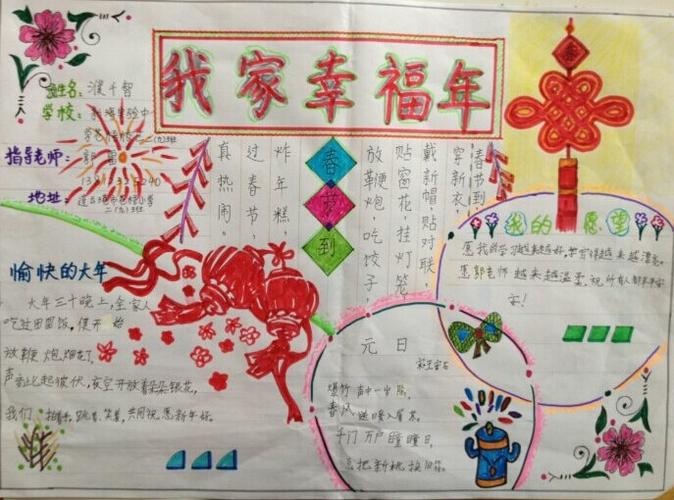 我家幸福年
姓名：濮千智
学校：
指导老师：
地址：
二（九）班
春节到
春节到
穿新衣，
戴新帽，贴对联
贴窗花，挂灯笼
放鞭炮，吃饺子，
炸年糕，
过春节，
真热闹。
愉快的大年
大年三十晚上，全家人
吃过团圆饭，便开始
放鞭炮，烟花了，
声音此起彼伏，夜空开放着朵朵银花，
我们 跳着，笑着，共同祝愿新年好。
元日
宋王安石
爆竹声中一岁除，
春风送暖入屠苏。
千门万户曈曈日，
总把新桃换旧符。
我的愿望
愿我的学习越来越好，
愿郭老师越来越温柔，祝所有人都